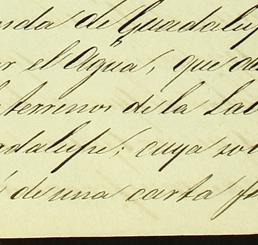 nda de Guadalup
r el Agua, que au
terrenos de la Lab
adalupe; cuya so
de una carta f